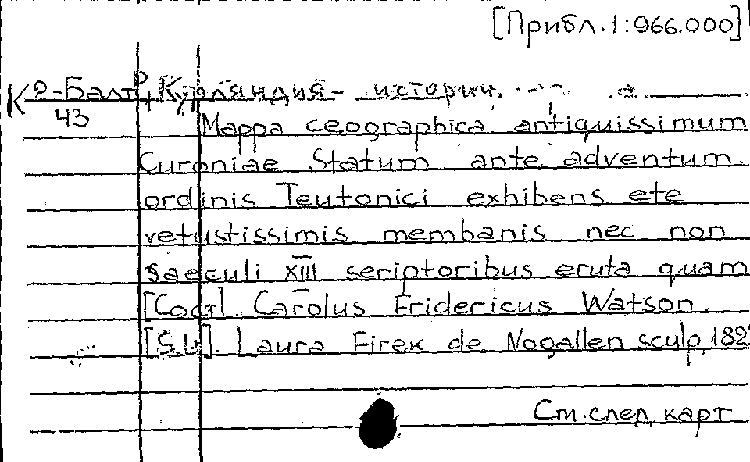 [Прибл. 1:966.000]
К О-Балт, Курляндия - историч.
43
Mappa geographica antiquissimum
Curoniae Statum ante adventum
ordinis Teutonici exhibens ete
vetustissimis membanis nec non
saeculi XIII scriptoribus eruta quam
Carolus Fridericus Watson.
Laura Firex de Nogallen sculp. 182
См. след. карт